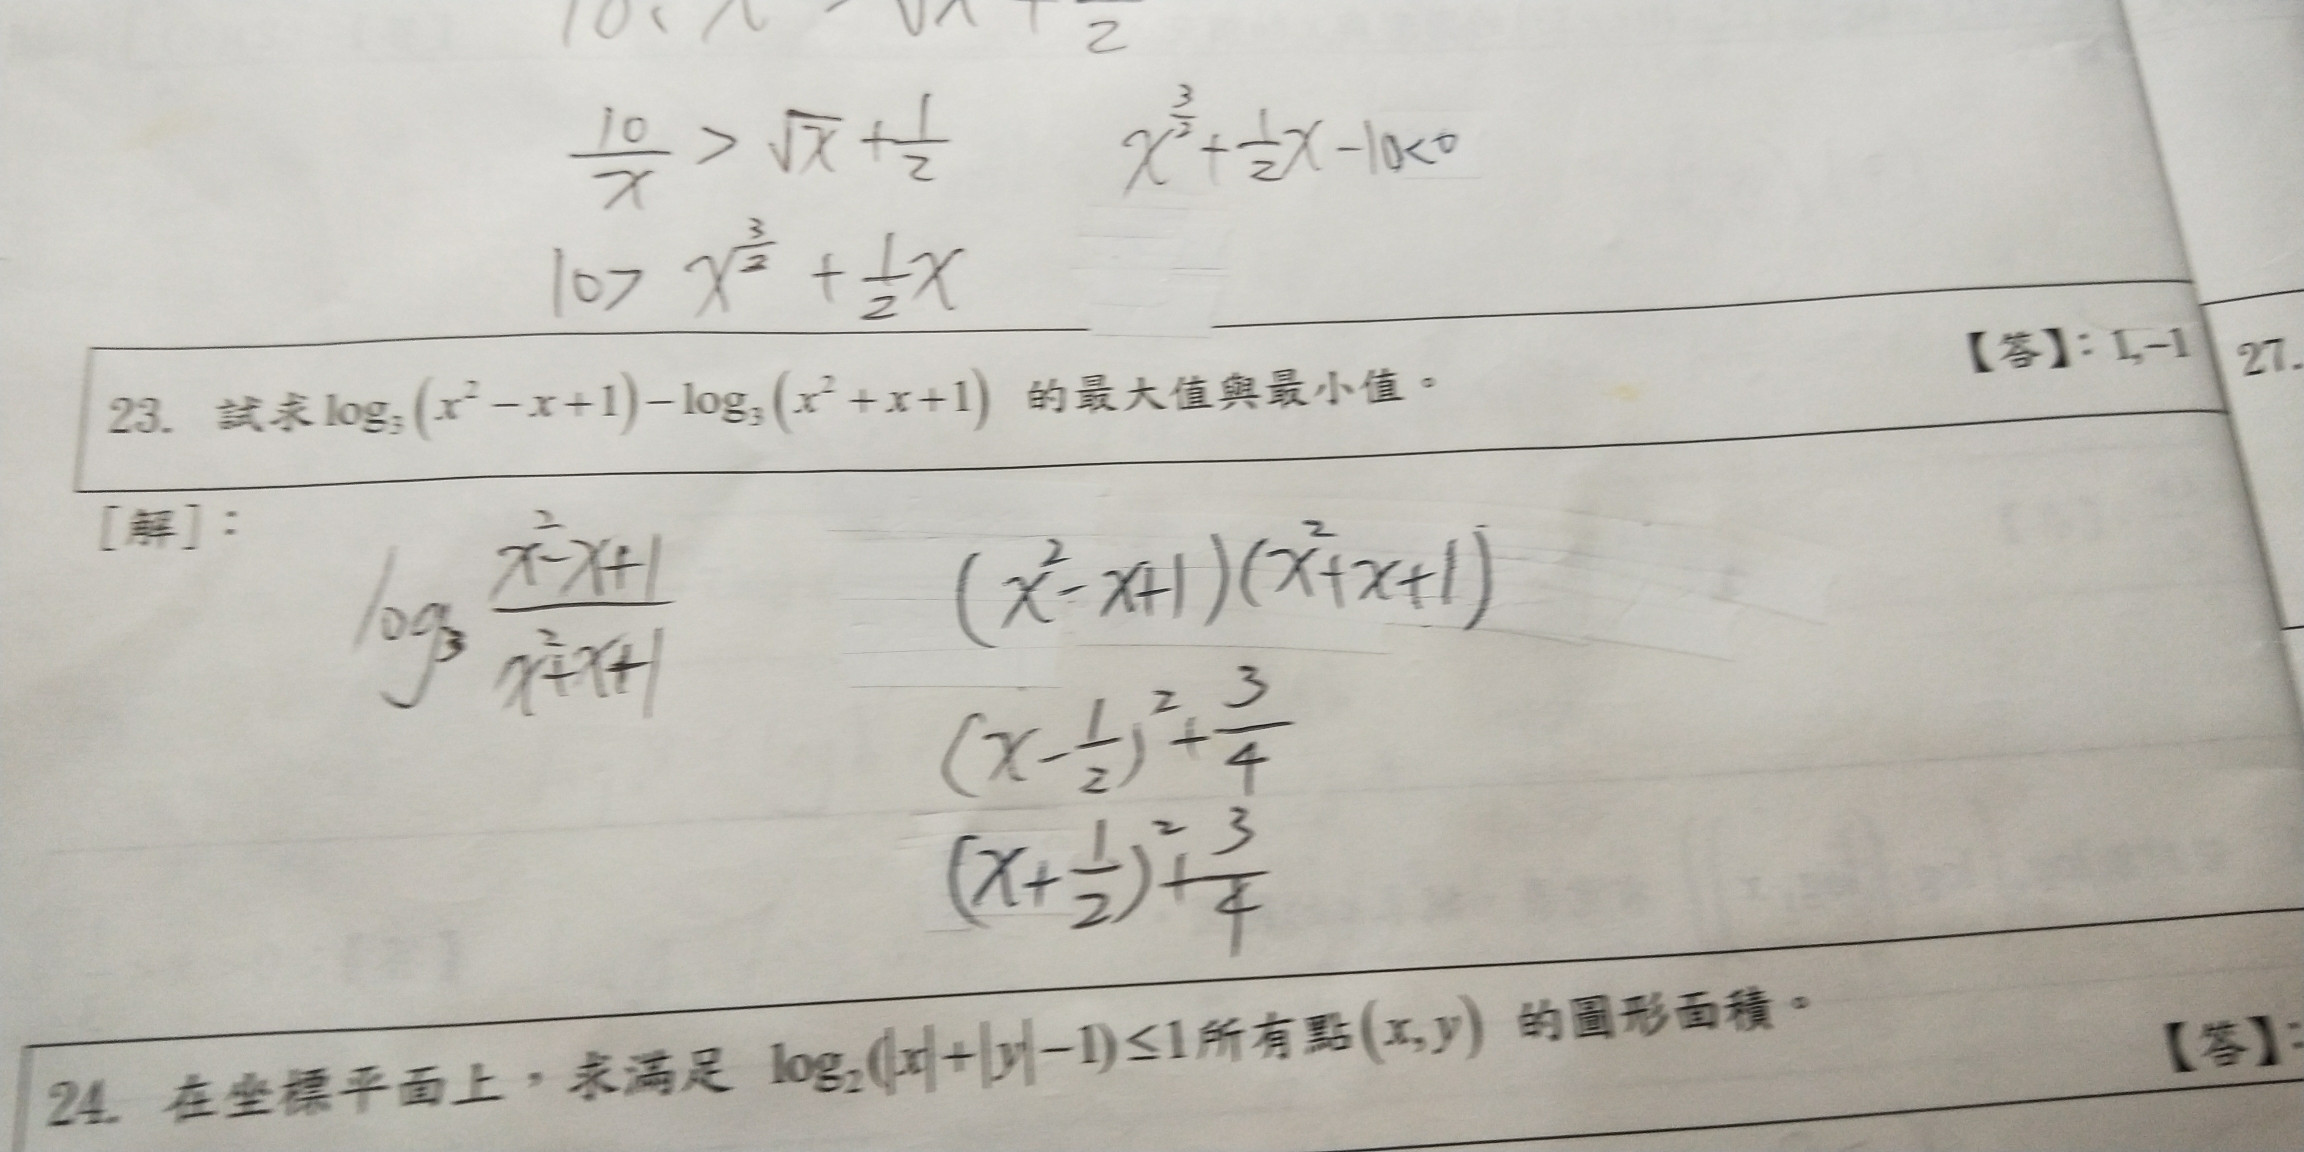 10 < x > √x + 1/2
10/x > √x + 1/2    x^(3/2) + 1/2 x - 10 < 0
10 > x^(3/2) + 1/2 x
【答】: 1,-1
27.
23. 試求 log₃(x² - x + 1) - log₃(x² + x + 1) 的最大值與最小值。
[解]:
log₃ (x² - x + 1)/(x² + x + 1)    (x² - x + 1)(x² + x + 1)
(x - 1/2)² + 3/4
(x + 1/2)² + 3/4
24. 在坐標平面上，求滿足 log₂(|x|+|y|-1) ≤ 1 所有點 (x, y) 的圖形面積。
【答】: